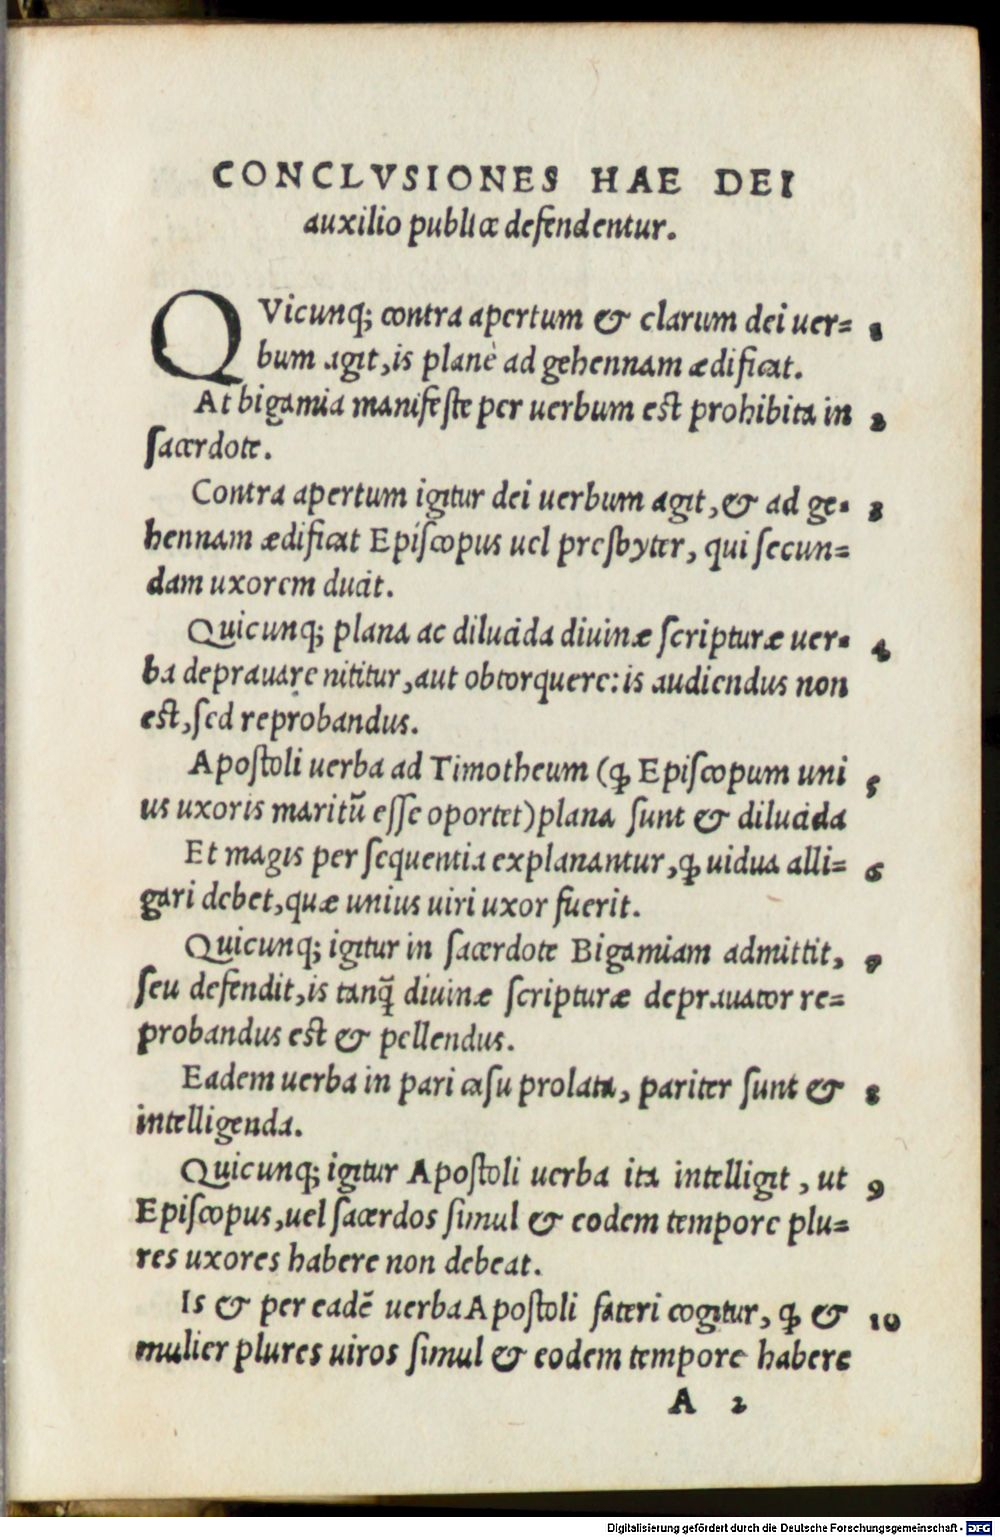 CONCLVSIONES HAE DEI
auxilio publicæ defendentur.
QVicunq; contra apertum & clarum dei uer= 1
bum agit, is planè ad gehennam ædificat.
At bigamia manifeste per uerbum est prohibita in 2
sacerdote.
Contra apertum igitur dei uerbum agit, & ad ge= 3
hennam ædificat Episcopus uel presbyter, qui secun=
dam uxorem ducit.
Quicunq; plana ac dilucida diuinæ scripturæ uer= 4
ba deprauare nititur, aut obtorquere: is audiendus non
est, sed reprobandus.
Apostoli uerba ad Timotheum (ꝙ Episcopum uni 5
us uxoris maritū esse oportet) plana sunt & dilucida
Et magis per sequentia explanantur, ꝙ uidua alli= 6
gari debet, quæ unius uiri uxor fuerit.
Quicunq; igitur in sacerdote Bigamiam admittit, 7
seu defendit, is tanq̃ diuinæ scripturæ deprauator re=
probandus est & pellendus.
Eadem uerba in pari casu prolata, pariter sunt & 8
intelligenda.
Quicunq; igitur Apostoli uerba ita intelligit, ut 9
Episcopus, uel sacerdos simul & eodem tempore plu=
res uxores habere non debeat.
Is & per eadē uerba Apostoli fateri cogitur, ꝙ & 10
mulier plures uiros simul & eodem tempore habere
A 2
Digitalisierung gefördert durch die Deutsche Forschungsgemeinschaft - DFG